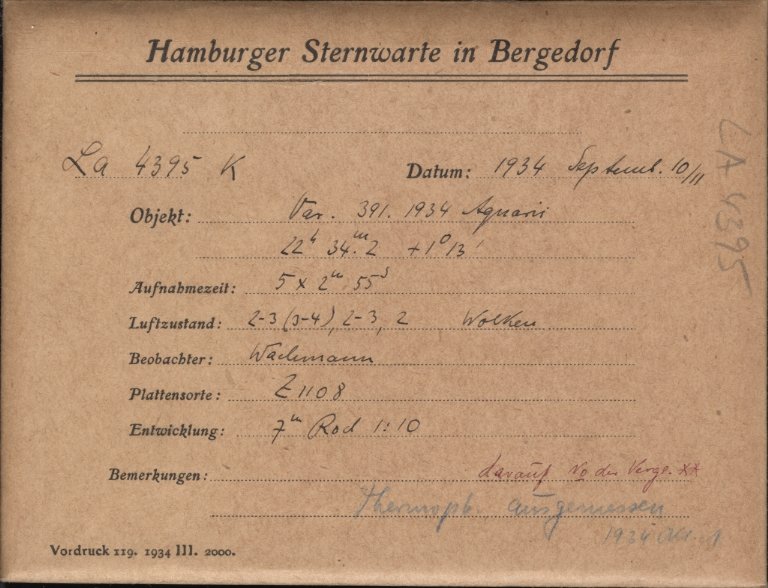 Hamburger Sternwarte in Bergedorf
La 4395 K Datum: 1934 Septemb. 10/11
Objekt: Var. 391. 1934 Aquarii
22ʰ 34ᵐ.2 +1°13'
Aufnahmezeit: 5 x 2ᵐ 55ˢ
Luftzustand: 2-3 (3-4), 2-3, 2 Wolken
Beobachter: Wachmann
Plattensorte: Z 1108
Entwicklung: 7ᵐ Rod 1:10
Bemerkungen: darauf No der Vergl. **
thermoph. ausgemessen
1934
Vordruck 119. 1934 III. 2000.
LA 4395